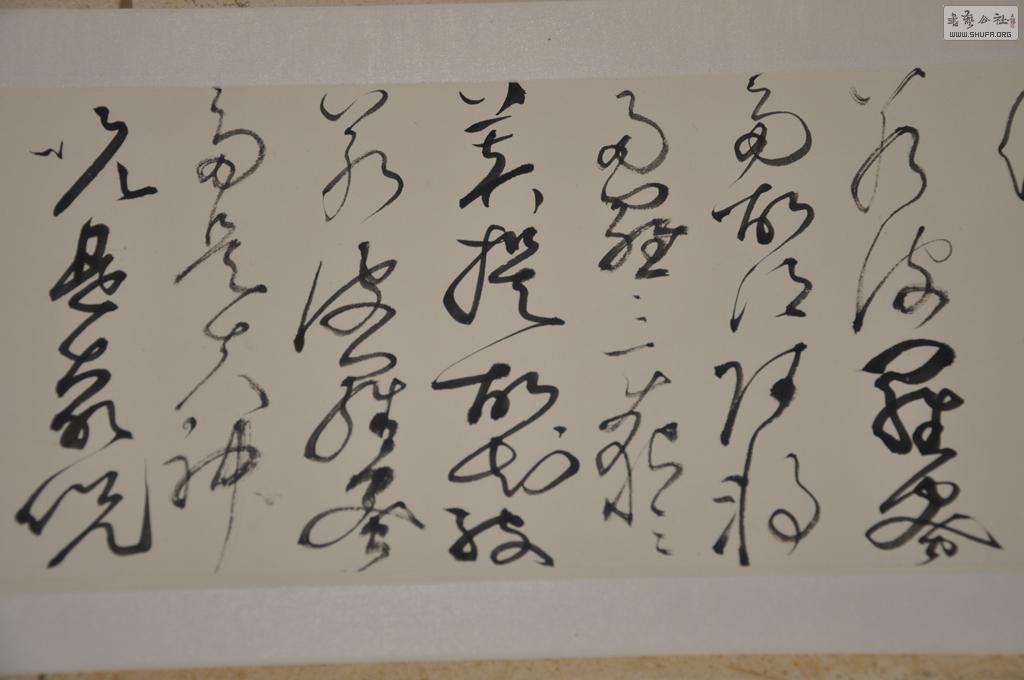 若波羅蜜
多故得阿耨
多羅三藐三
菩提故知般
若波羅蜜
多是大神
咒是大明咒
書藝公社
WWW.SHUFA.ORG